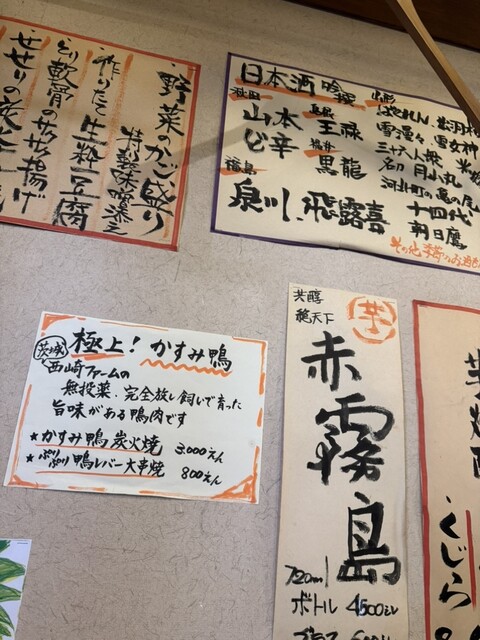 野菜のかご盛り
特製味噌添え
作りたて生粋豆腐
とり軟骨のサクサク揚げ
せせりの炭
日本酒 吟醸
秋田
山本
ど辛
福島
泉川、飛露喜
島根
王祿
福井
黒龍
山形
雪漫々、雪女神
三十六人衆
名刀 月山丸
河北町の亀の尾
十四代
朝日鷹
その他
茨城
極上!かすみ鴨
西崎ファームの
無投薬、完全放し飼いで育った
旨味がある鴨肉です
★かすみ鴨炭火焼 3,000えん
★ぷりぷり鴨レバー大串焼 800えん
芋
芳醇
赤霧島
720ml
ボトル 4500えん
グラス
くじら